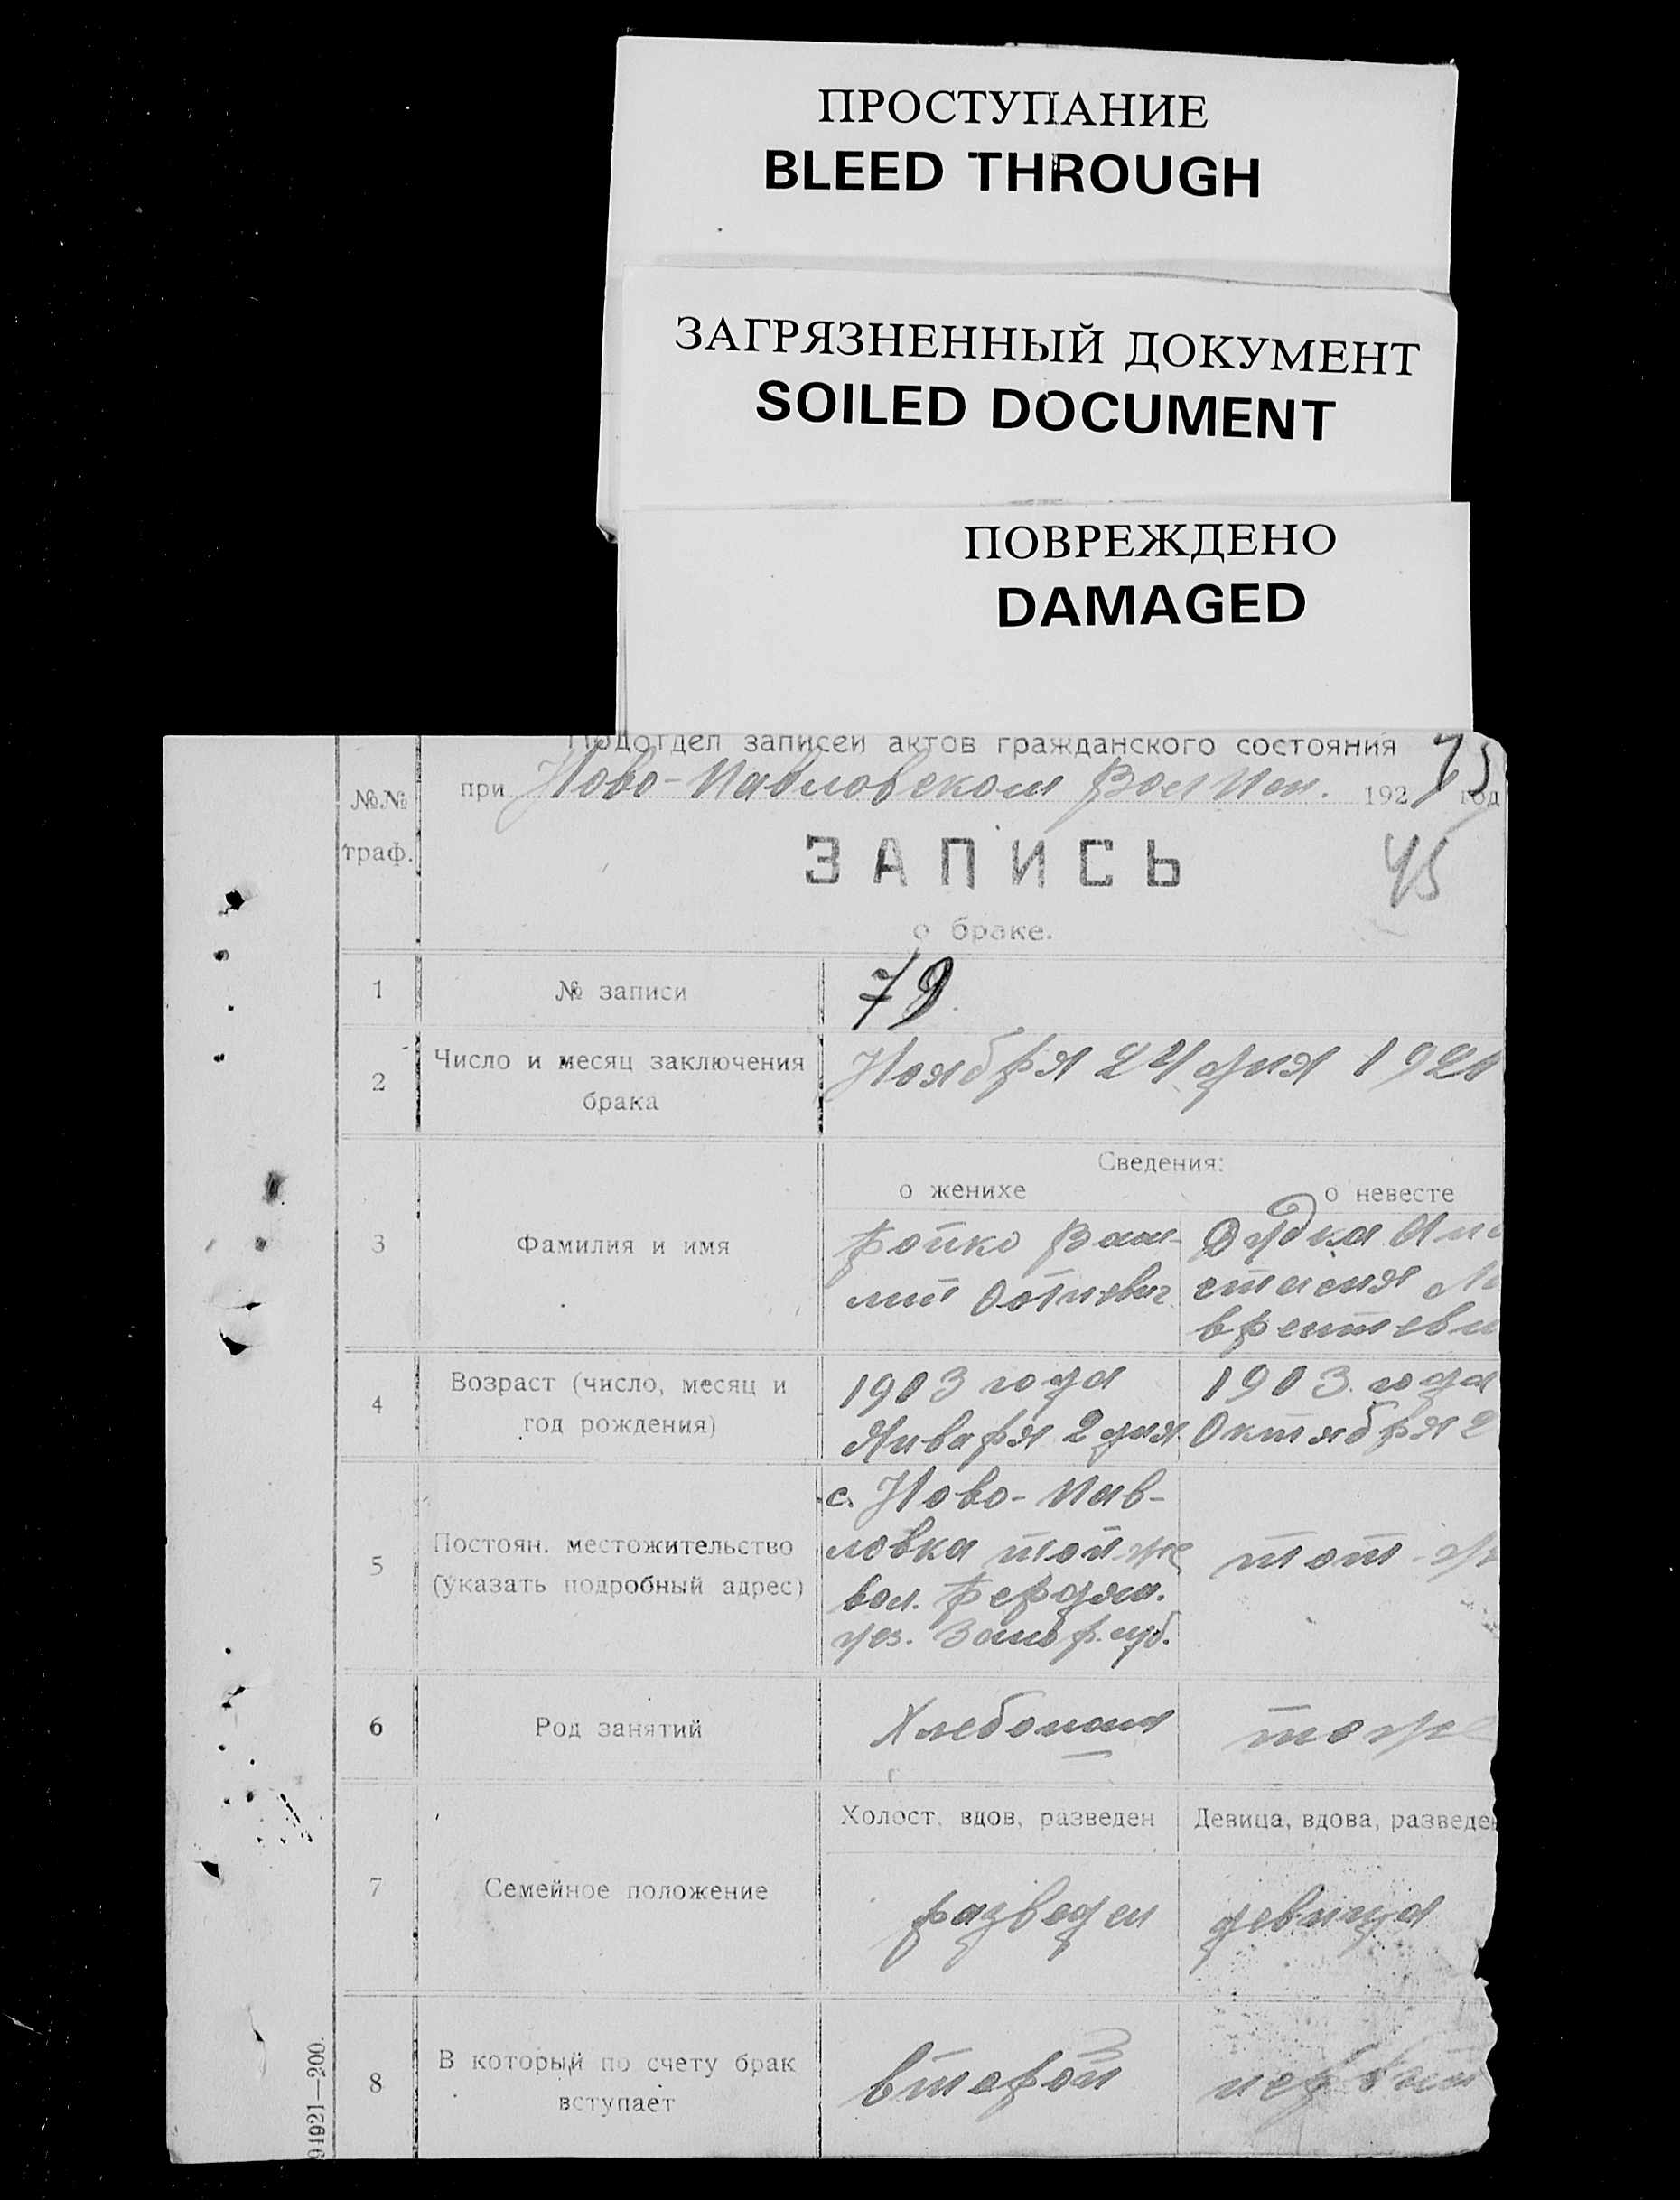 ПРОСТУПАНИЕ
BLEED THROUGH
ЗАГРЯЗНЕННЫЙ ДОКУМЕНТ
SOILED DOCUMENT
ПОВРЕЖДЕНО
DAMAGED
Подотдел записей актов гражданского состояния
№№ граф.
при Ново-Павловском Вол 192 год
45
ЗАПИСЬ
о браке.
1 № записи 79
2 Число и месяц заключения Ноября 24 дня 1921
брака
Сведения:
о женихе о невесте
3 Фамилия и имя
Дудка Ана
стасия
врентьев
4 Возраст (число, месяц и
год рождения)
1903 года
Января 2 дня
1903 года
Октября 2
5 Постоян. местожительство
(указать подробный адрес)
с. Ново-Пав-
ловка той-же
вол. Бердян.
уез. Запор. губ.
тот-ж
6 Род занятий Хлебопаш тоже
Холост, вдов, разведен Девица, вдова, разведен
7 Семейное положение разведен девица
8 В который по счету брак
вступает
второй первый
91921—200.